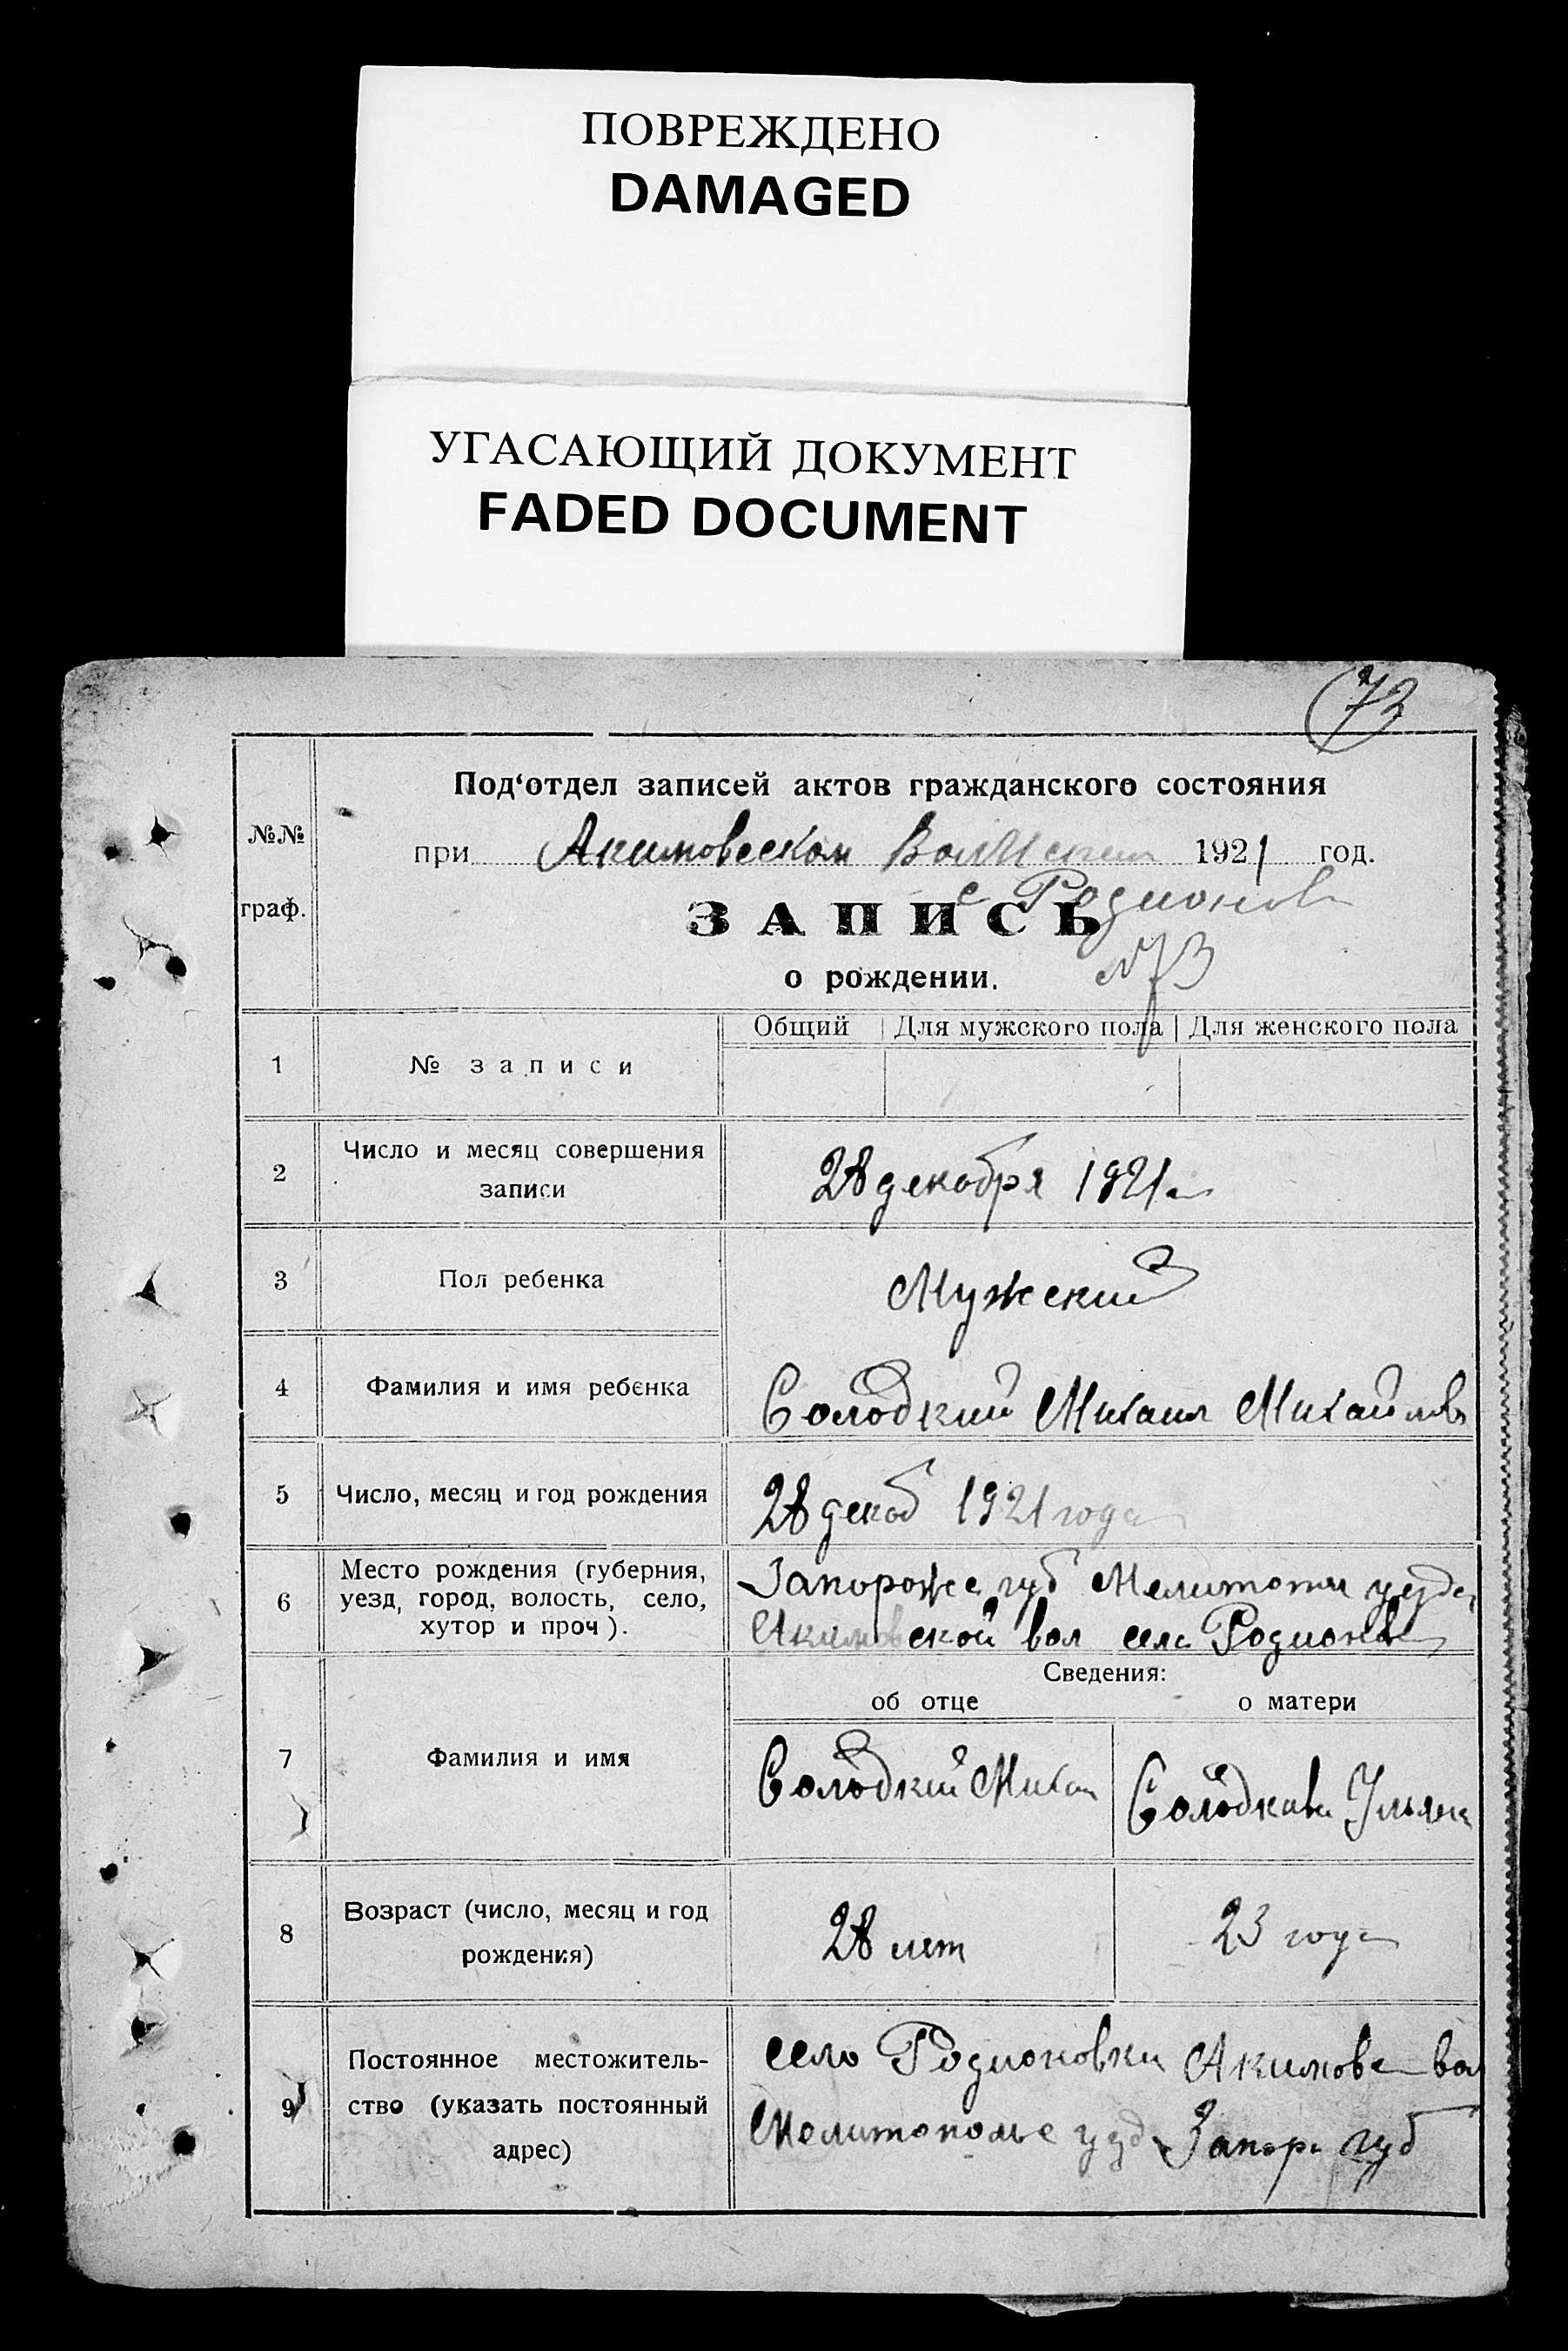 ПОВРЕЖДЕНО
DAMAGED
УГАСАЮЩИЙ ДОКУМЕНТ
FADED DOCUMENT
73
Под‘отдел записей актов гражданского состояния
№№ граф.
при Акимовском 1921 год.
с Родионов
ЗАПИСЬ
о рождении. №73
Общий Для мужского пола Для женского пола
1 № записи
2 Число и месяц совершения
записи
28 декабря 1921 г
3 Пол ребенка Мужский
4 Фамилия и имя ребенка Солодкий Михаил Михайлов
5 Число, месяц и год рождения 28 декаб 1921 года
6 Место рождения (губерния,
уезд, город, волость, село,
хутор и проч).
Запорож губ Мелитопол уезд
Акимовской вол село Родионов
Сведения:
об отце о матери
7 Фамилия и имя Солодкий Миха Солодкова Ульяна
8 Возраст (число, месяц и год
рождения)
28 лет 23 года
9 Постоянное местожитель-
ство (указать постоянный
адрес)
село Родионовки Акимовс вол
Мелитополье уезд Запор губ